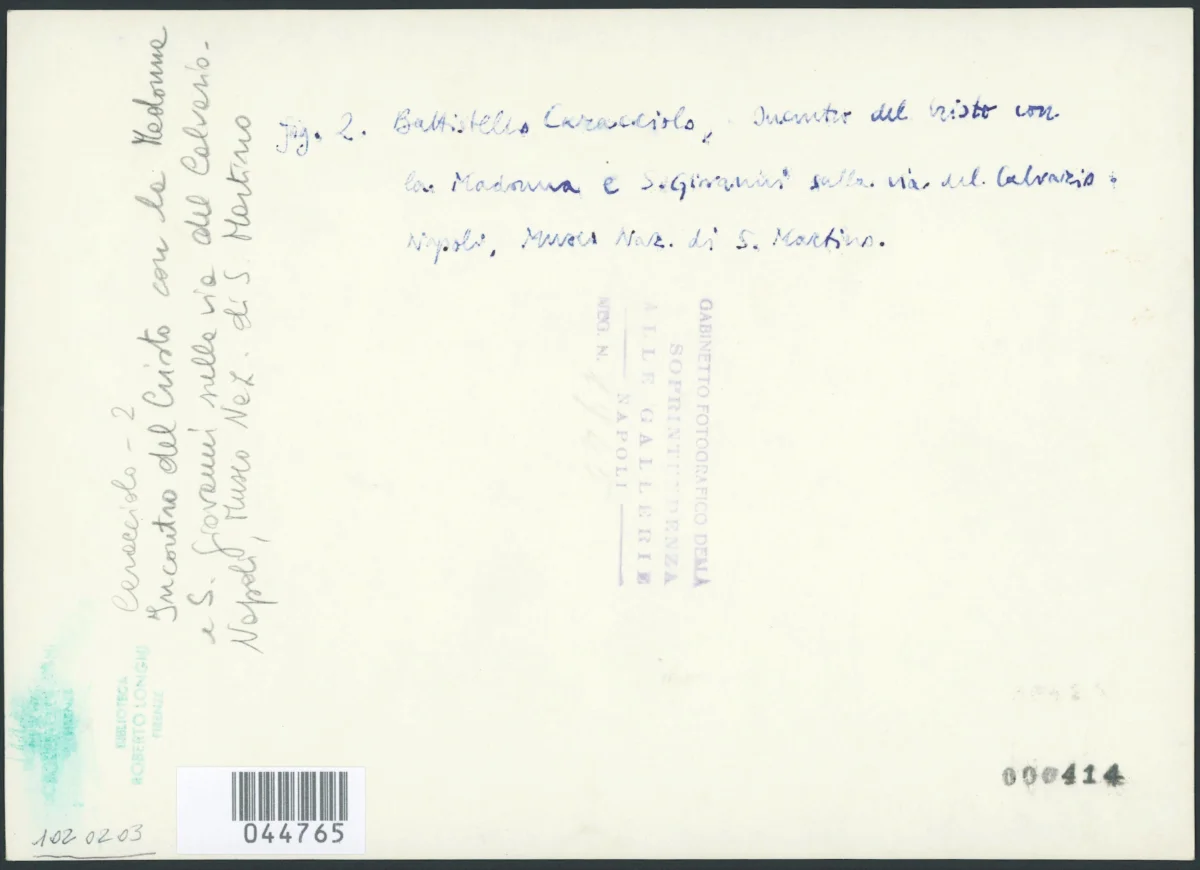 fig. 2. Battistello Caracciolo, Incontro del Cristo con
la Madonna e S. Giovanni sulla via del Calvario:
Napoli, Museo Naz. di S. Martino.
Caracciolo - 2
Incontro del Cristo con la Madonna
e S. Giovanni sulla via del Calvario.
Napoli, Museo Naz. di S. Martino
GABINETTO FOTOGRAFICO DELLA
SOPRINTENDENZA
ALLE GALLERIE
NAPOLI
NEG. N.
BIBLIOTECA
ROBERTO LONGHI
FIRENZE
102 02 03
044765
000414